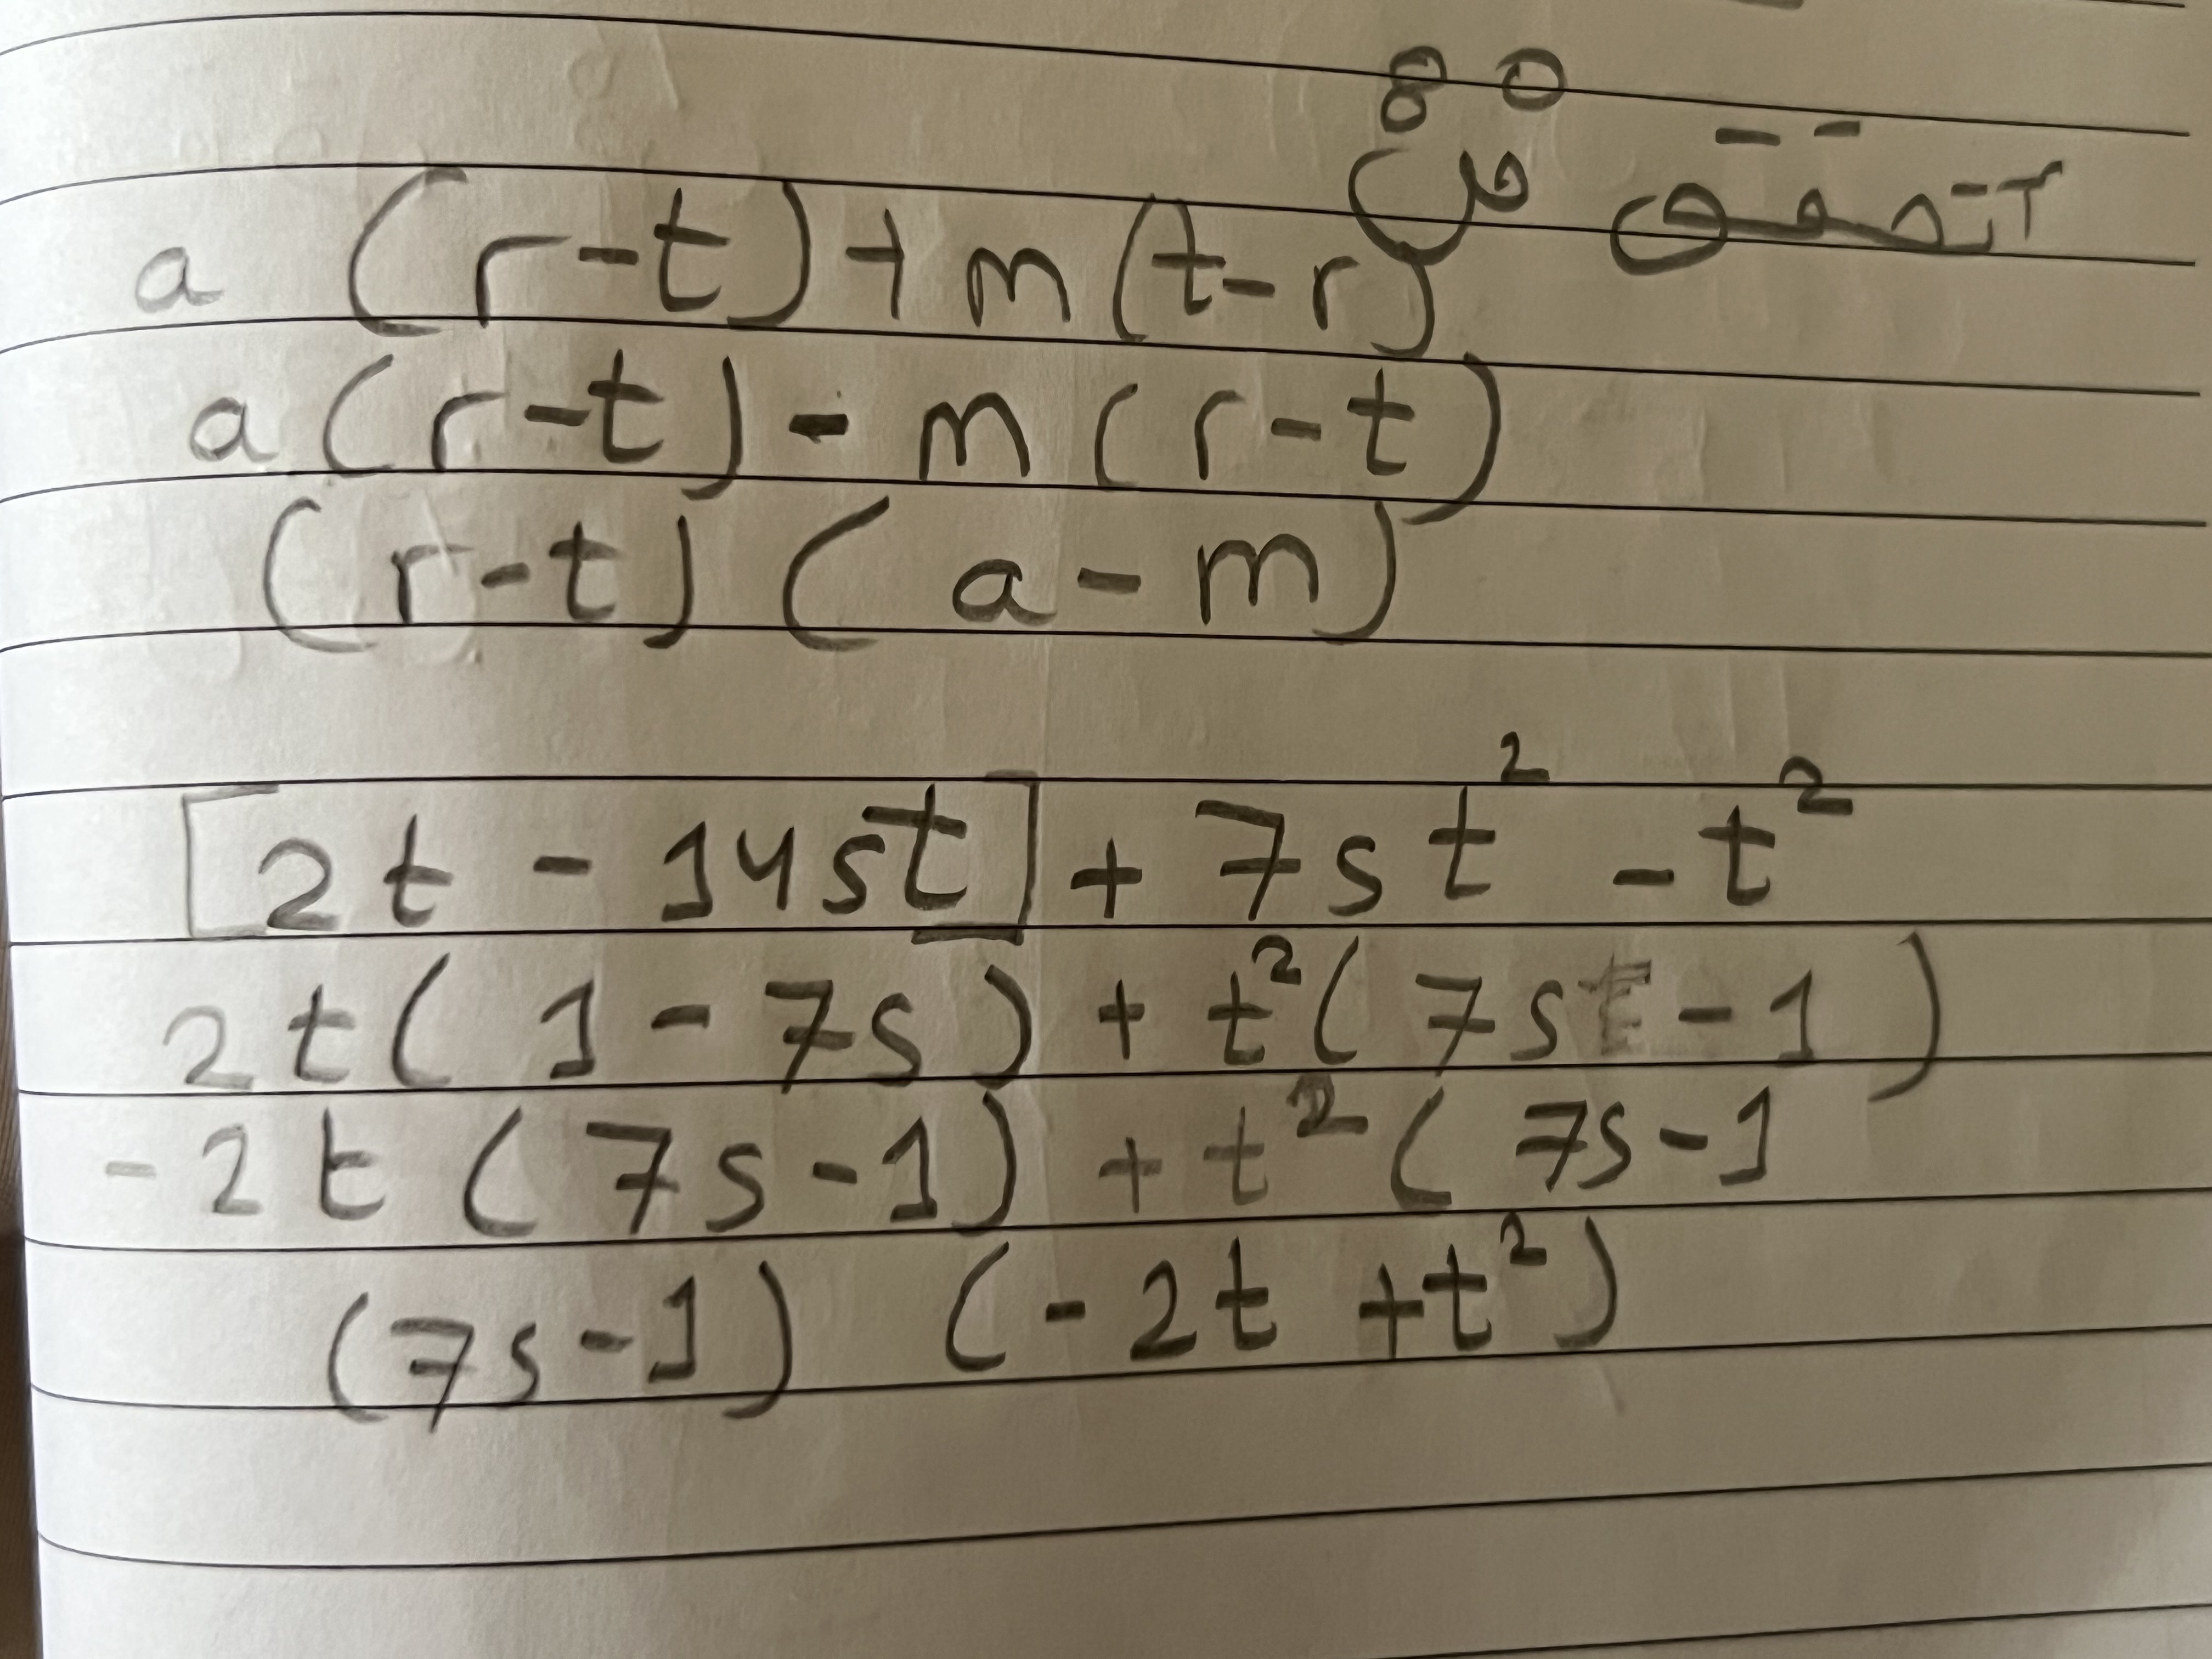 a (r-t)+m(t-r)
a(r-t)-m(r-t)
(r-t)(a-m)
[2t - 14st] + 7st² - t²
2t(1-7s) + t²(7s-1)
-2t(7s-1) + t²(7s-1
(7s-1) (-2t+t²)